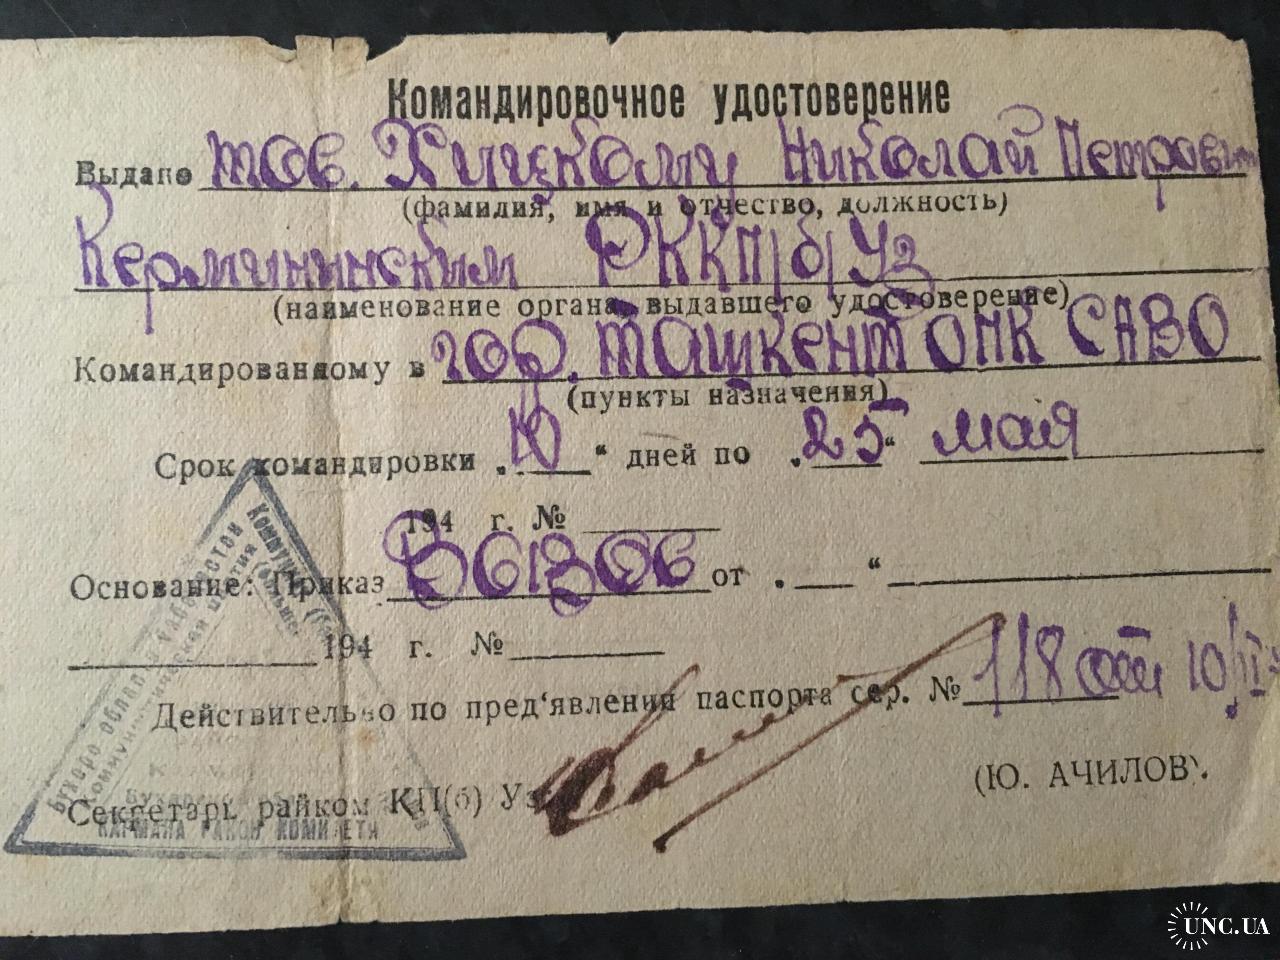 Командировочное удостоверение
Выдано тов. Хицкому Николай Петрович
(фамилия, имя и отчество, должность)
Керминским РККП/б/Уз
(наименование органа, выдавшего удостоверение)
Командированному в гор. Ташкент ОМК САВО
(пункты назначения)
Срок командировки „10“ дней по „25“ мая
194 г. №
Основание: Приказ Вызов от „ “
194 г. №
Действительно по пред‘явлении паспорта сер. № 118 от 10/
Секретарь райком КП(б) Уз
(Ю. АЧИЛОВ).
Бухоро област
Коммунистическая партия
КАРМАНА РАЙОН КОМИТЕТИ
UNC.UA